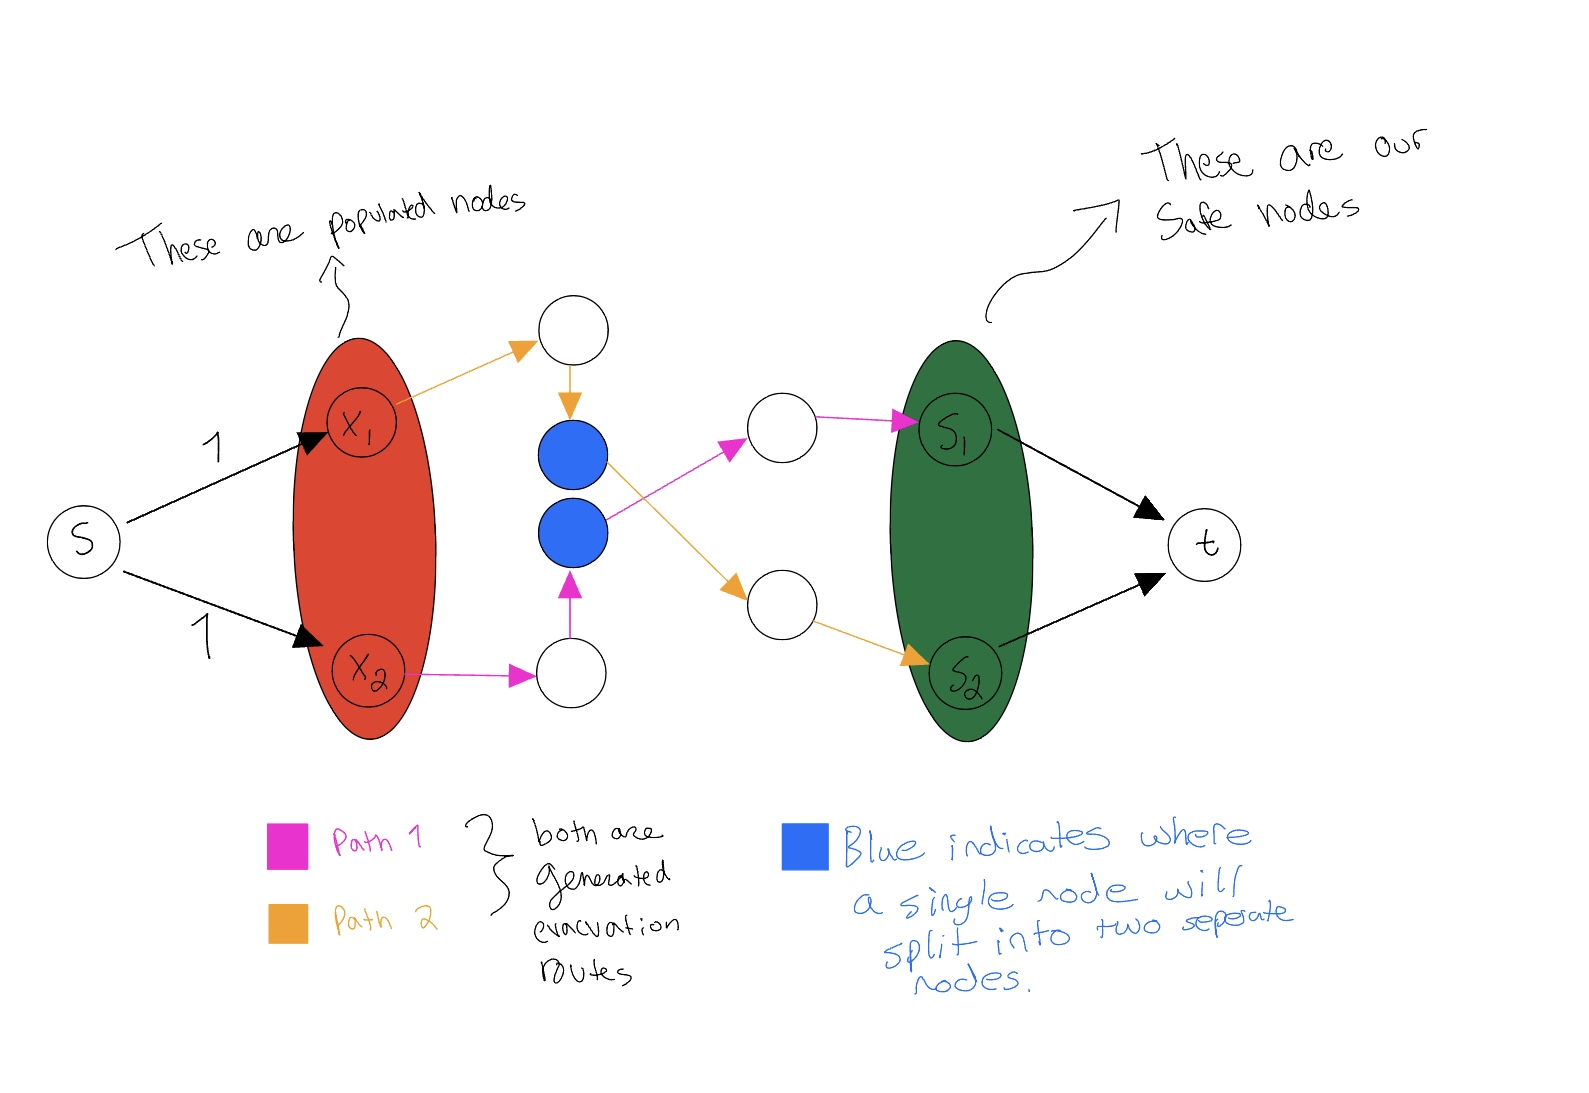 These are our
safe nodes
These are populated nodes
1
X1
S1
S
t
1
X2
S2
Path 1
both are
generated
evacuation
routes
Path 2
Blue indicates where
a single node will
split into two seperate
nodes.